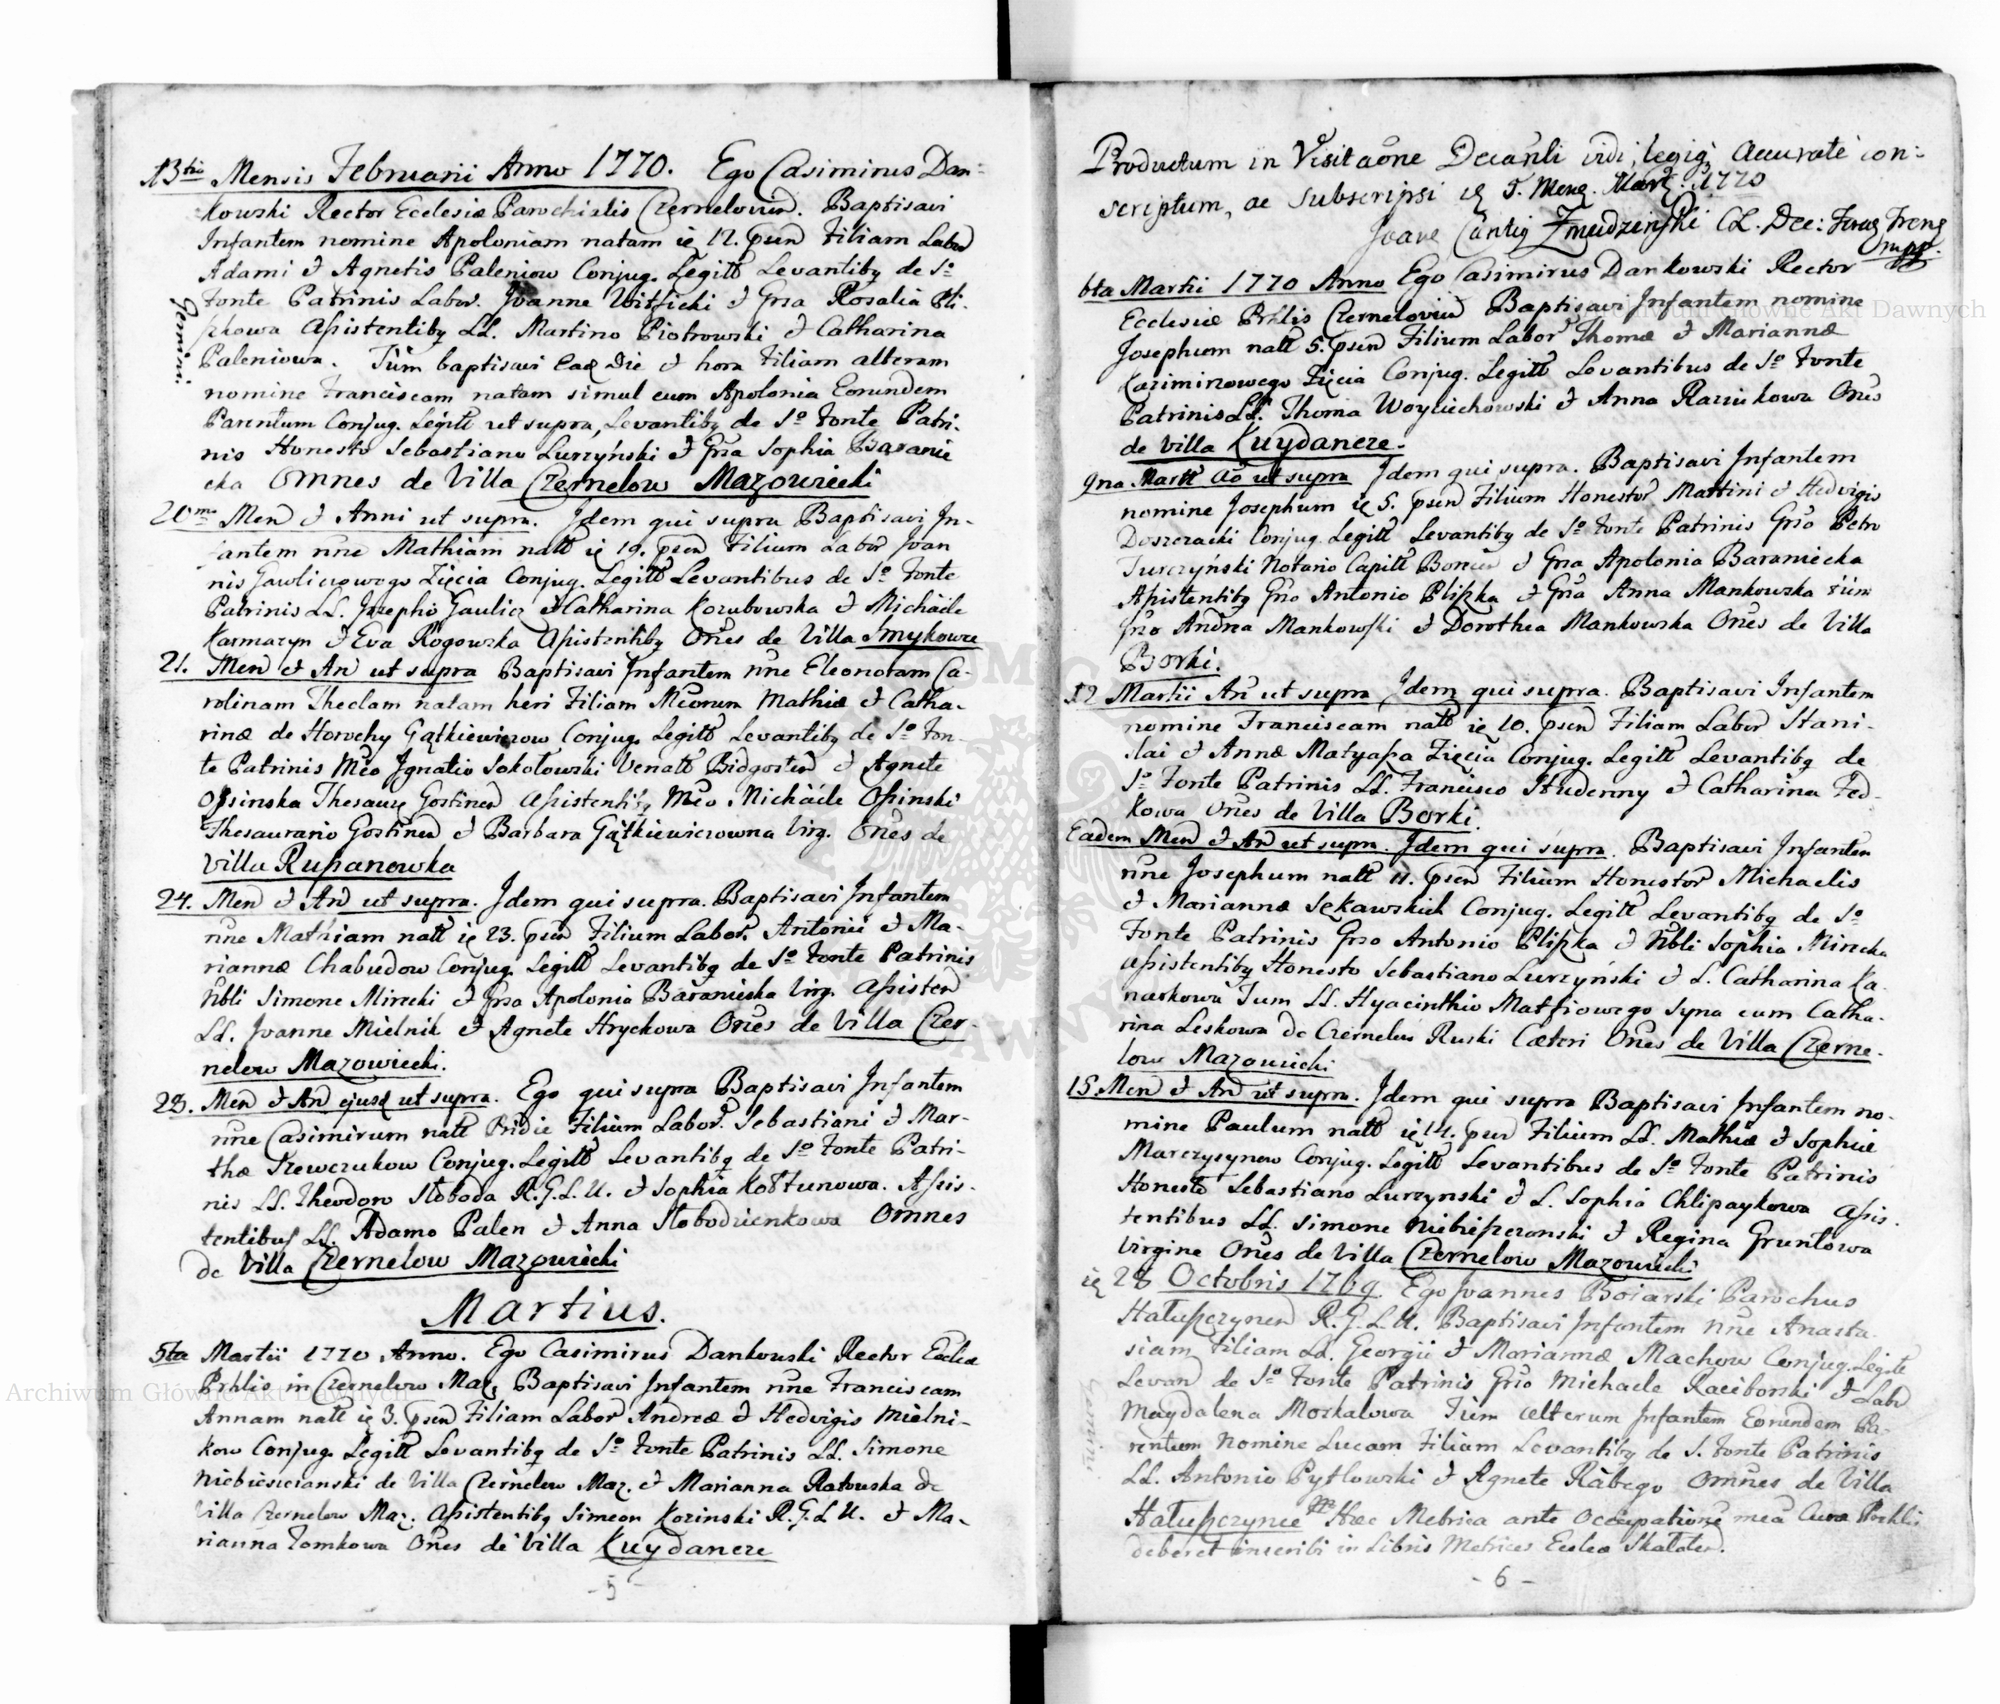 13tia Mensis Februarii Anno 1770. Ego Casimirus Dan-
kowski Rector Ecclesiæ Parochialis Czerneloviен. Baptisavi
Infantem nomine Apoloniam natam ię 12. psen Filiam Labor
Adami & Agnetis Paleniow Conjug. Legitt Levantibq de So
Fonte Patrinis Labor. Joanne Witficki & Grsa Rosalia Pli-
szkowa Assistentibq LL. Martino Piotrowski & Catharina
Paleniowa. Tum baptisavi Eadē Die & hora Filiam alteram
nomine Franciscam natam simul cum Apolonia Eorundem
Parentum Conjug. Legitt ut supra, Levantibq de So Fonte Patri-
nis Honesto Sebastiano Lurzyński & Grsa Sophia Baranie
cka Omnes de Villa Czernelow Mazowiecki
Gemini.
20ma Men & Anni ut supra. Idem qui supra Baptisavi In-
fantem nne Mathiam natt ię 19. psen Filium Labor Joan
nis Gawliczowego Zięcia Conjug. Legitt Levantibus de So Fonte
Patrinis LL. Josepho Gaulicz & Catharina Kozubowska & Michaele
Karmazyn & Eva Rogowska Assistentibq Ones de Villa Smykowce
21. Men et An ut supra Baptisavi Infantem nne Eleonoram Ca-
rolinam Theclam natam heri Filiam Mcorum Mathiæ & Catha-
rinæ de Horochy Gątkiewiczow Conjug. Legitt Levantibq de So Fon-
te Patrinis Mco Ignatio Sokołowski Venatt Bidgosten & Agnete
Ossinska Thesaurę Gostinen Assistentibq Mco Michaele Ossinski
Thesaurario Gostinen & Barbara Gątkiewiczowna Virg. Ones de
Villa Rusanowka
24. Men & An ut supra. Idem qui supra. Baptisavi Infantem
nne Mathiam natt ię 23. psen Filium Labor. Antonii & Ma-
riannæ Chabudow Conjug. Legitt Levantibq de So Fonte Patrinis
Nbli Simone Mirecki & Grsa Apolonia Baraniecka Virg. Assisten
LL. Joanne Mielnik & Agnete Hryckowa Ones de Villa Czer-
nelow Mazowiecki.
28. Men & An ejusd ut supra. Ego qui supra Baptisavi Infantem
nne Casimirum natt Pridie Filium Labor. Sebastiani & Mar-
thæ Szewczukow Conjug. Legitt Levantibq de So Fonte Patri-
nis LL. Theodoro Słoboda R.G.L.U. & Sophia Kołtunowa. Assis-
tentibus LL. Adamo Palen & Anna Słobodzienkowa Omnes
de Villa Czernelow Mazowiecki
Martius.
5ta Martii 1770 Anno. Ego Casimirus Dankowski Rector Eccłæ
Prhlis in Czernelow Maz. Baptisavi Infantem nne Franciscam
Annam natt ię 3. psen Filiam Labor Andreæ & Hedvigis Mielni-
kow Conjug. Legitt Levantibq de So Fonte Patrinis LL. Simone
Niebieszczanski de Villa Czernelow Maz. & Marianna Ratowska de
Villa Czernelow Maz. Assistentibq Simeon Kozinski R.G.L.U. & Ma-
rianna Tomkowa Ones de Villa Kuydancze
- 5 -
Productum in Visitaone Decanli vidi, legiq; accurate con-
scriptum, ac subscripsi ię 5. Mens. Martii 1770
Joane Cantiq Zmudzinski CL. Dec:
mpp.
6ta Martii 1770 Anno Ego Casimirus Dankowski Rector
Ecclesiæ Prhlis Czernelovien Baptisavi Infantem nomine
Josephum natt 5. psen Filium Labor Thomæ & Mariannæ
Kazimirowego Zięcia Conjug. Legitt Levantibus de So Fonte
Patrinis LL. Thoma Woyciechowski & Anna Raziukowa Ones
de Villa Kuydancze.
9na Martt Ao ut supra Idem qui supra. Baptisavi Infantem
nomine Josephum ię 5. psen Filium Honestor Martini & Hedvigis
Doszczacki Conjug. Legitt Levantibq de So Fonte Patrinis Grso Petro
Turczyński Notario Capitt & Grsa Apolonia Baraniecka
Assistentibq Grso Antonio Pliszka & Grsa Anna Mankowska tum
Grso Andrea Mankowski & Dorothea Mankowska Ones de Villa
Borki.
12 Martii An ut supra Idem qui supra. Baptisavi Infantem
nomine Franciscam natt ię 10. psen Filiam Labor Stani-
slai & Annæ Matyasza Zięcia Conjug. Legitt Levantibq de
So Fonte Patrinis LL. Francisco Studenny & Catharina Fed-
kowa Ones de Villa Borki.
Eadem Men & An ut supra. Idem qui supra. Baptisavi Infantem
nne Josephum natt 11. psen Filium Honestor Michaelis
& Mariannæ Sękawskich Conjug. Legitt Levantibq de So
Fonte Patrinis Grso Antonio Pliszka & Nbli Sophia Mirecka
Assistentibq Honesto Sebastiano Lurczyński & L. Catharina Ka-
narkowa Tum LL. Hyacinthio Matfiowego Syna cum Catha-
rina Leskowa de Czernelow Ruski Cæteri Ones de Villa Czerne-
low Mazowiecki
15 Men & An ut supra. Idem qui supra Baptisavi Infantem no-
mine Paulum natt ię 14. psen Filium LL. Mathiæ & Sophiæ
Marczysynow Conjug. Legitt Levantibus de So Fonte Patrinis
Honesto Sebastiano Lurzynski & L. Sophia Chlipaykowa Assis-
tentibus LL. Simone Niebieszczanski & Regina Gruntowa
Virgine Ones de Villa Czernelow Mazowiecki
ię 28 Octobris 1769. Ego Joannes Boiarski Parochus
Hałuszczynen R.G.L.U. Baptisavi Infantem nne Anasta-
siam Filiam LL. Georgii & Mariannæ Machow Conjug. Legitt
Levan de So Fonte Patrinis Grso Michaele Raciborski & Labr
Magdalena Moskalowa Tum alterum Infantem Eorundem Pa-
rentum Nomine Lucam Filium Levantibq de S. Fonte Patrinis
LL. Antonio Pytlowski & Agnete Rabego Omnes de Villa
Hałuszczynce Hæc Metrica ante Occupationē meā Curæ Prchli
deberet inscribi in Libris Metrices Eccłæ Skałaten.
Gemini
- 6 -
Archiwum Główne Akt Dawnych
Archiwum Główne Akt Dawnych